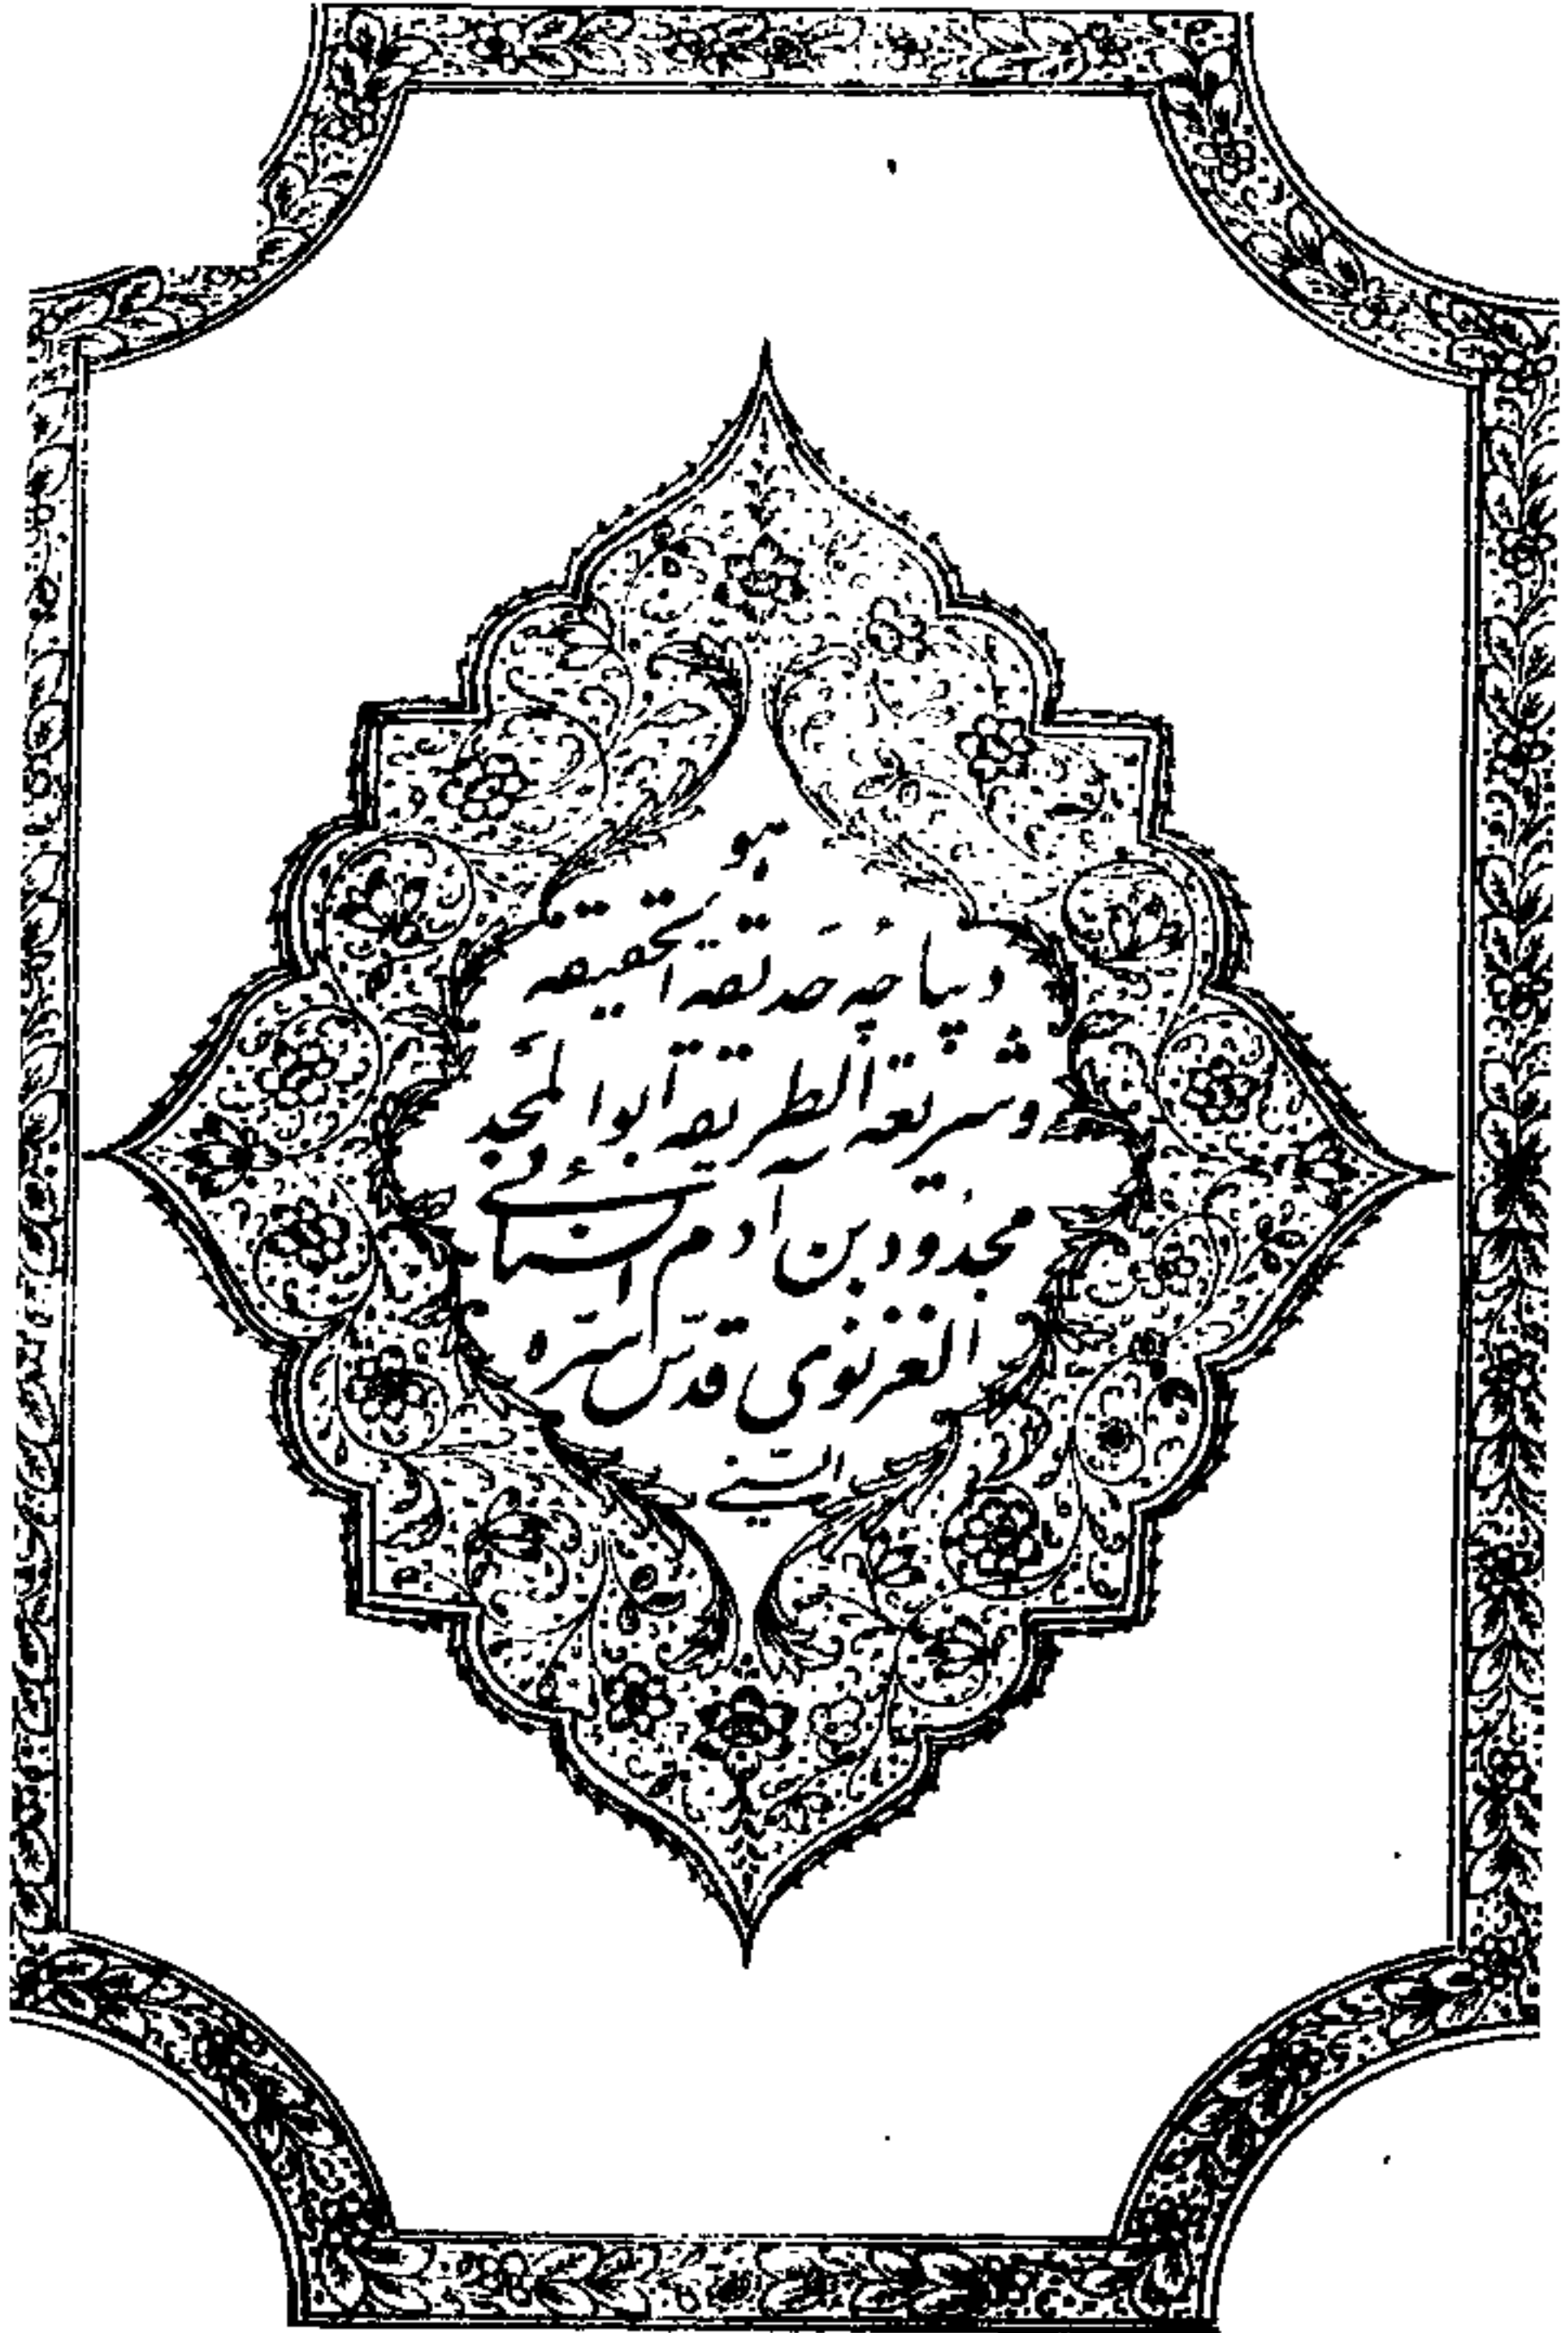 هو
دیباچهٔ حدیقة الحقیقه
و شریعة الطریقه ابوالمجد
مجدود بن آدم السنائی
الغزنوی قدس سره
السنی